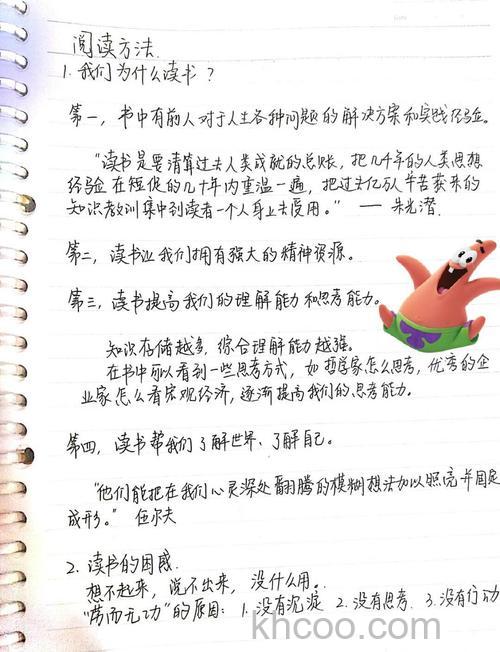 阅读方法.
1. 我们为什么读书？
第一，书中有前人对于人生各种问题的解决方案和实践经验。
"读书是要清算过去人类成就的总账，把几千年的人类思想
经验在短促的几十年内重温一遍，把过去亿万人辛苦获来的
知识教训集中到读者一个人身上去受用。" —— 朱光潜
第二，读书让我们拥有强大的精神资源。
第三，读书提高我们的理解能力和思考能力。
知识存储越多，综合理解能力越强。
在书中可以看到一些思考方式，如哲学家怎么思考，优秀的企
业家怎么看宏观经济，逐渐提高我们的思考能力。
第四，读书帮我们了解世界、了解自己。
"他们能把在我们心灵深处翻腾的模糊想法加以照亮并固定
成形。" 伍尔夫
2. 读书的困惑.
想不起来，说不出来，没什么用。
"劳而无功"的原因：1. 没有沉淀 2. 没有思考. 3. 没有行动
khcoo.com